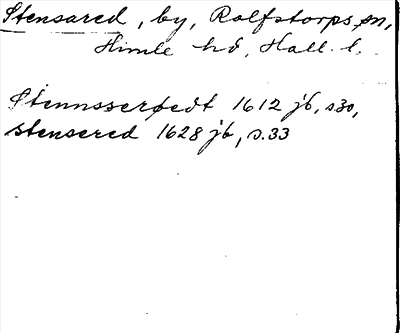 Stensared, by, Rolfstorps sn,
Himle hd, Hall. l.
Stennsserødt 1612 jb, s30,
stensered 1628 jb, s.33